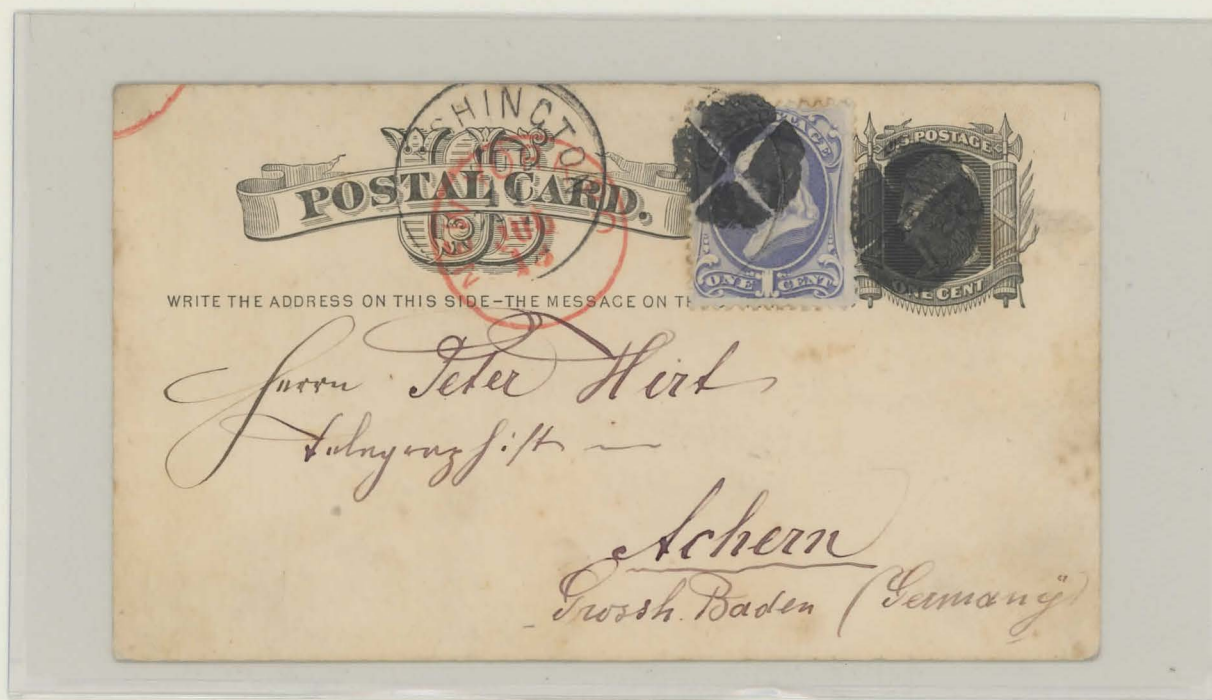 WASHINGTON
POSTAL CARD.
NEW YORK
JUL
U.S. POSTAGE
ONE CENT
POSTAGE
ONE 1 CENT
WRITE THE ADDRESS ON THIS SIDE-THE MESSAGE ON TH
Herrn Peter Hirt
Telegraphist —
Achern
Grossh. Baden (Germany)